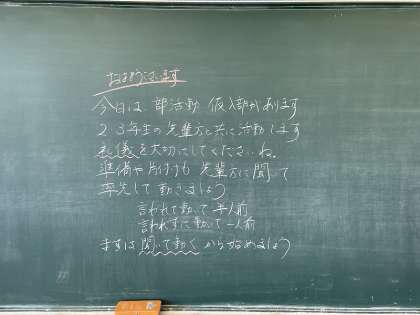 おはようございます
今日は、部活動 仮入部があります
2、3年生の先輩方と共に活動します
礼儀を大切にしてくださいね。
準備や片付けも 先輩方に聞いて
率先して 動きましょう
言われて動いて 半人前
言われずに動いて 一人前
まずは 聞いて動く から始めましょう